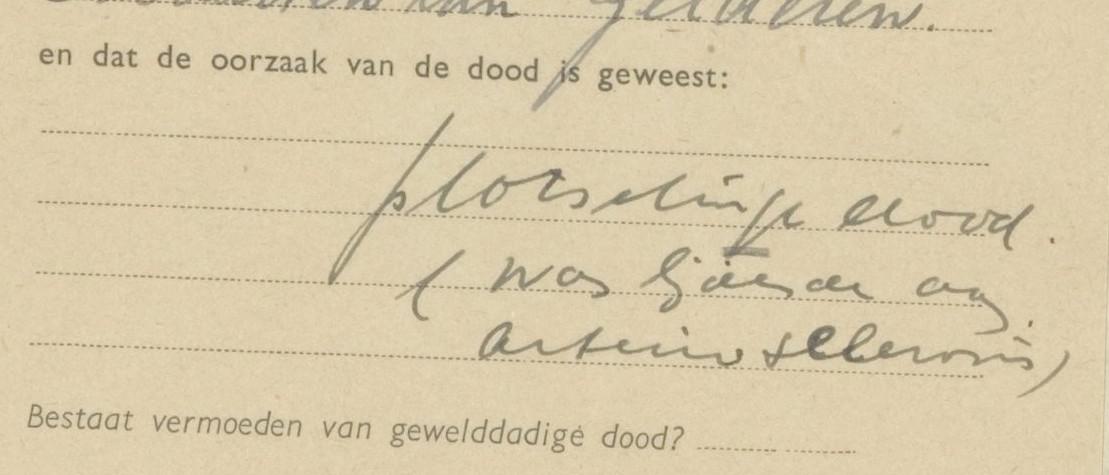 van Gelderen.
en dat de oorzaak van de dood is geweest:
plotselinge dood.
(was lijdende aan
arteriosclerosis)
Bestaat vermoeden van gewelddadige dood?